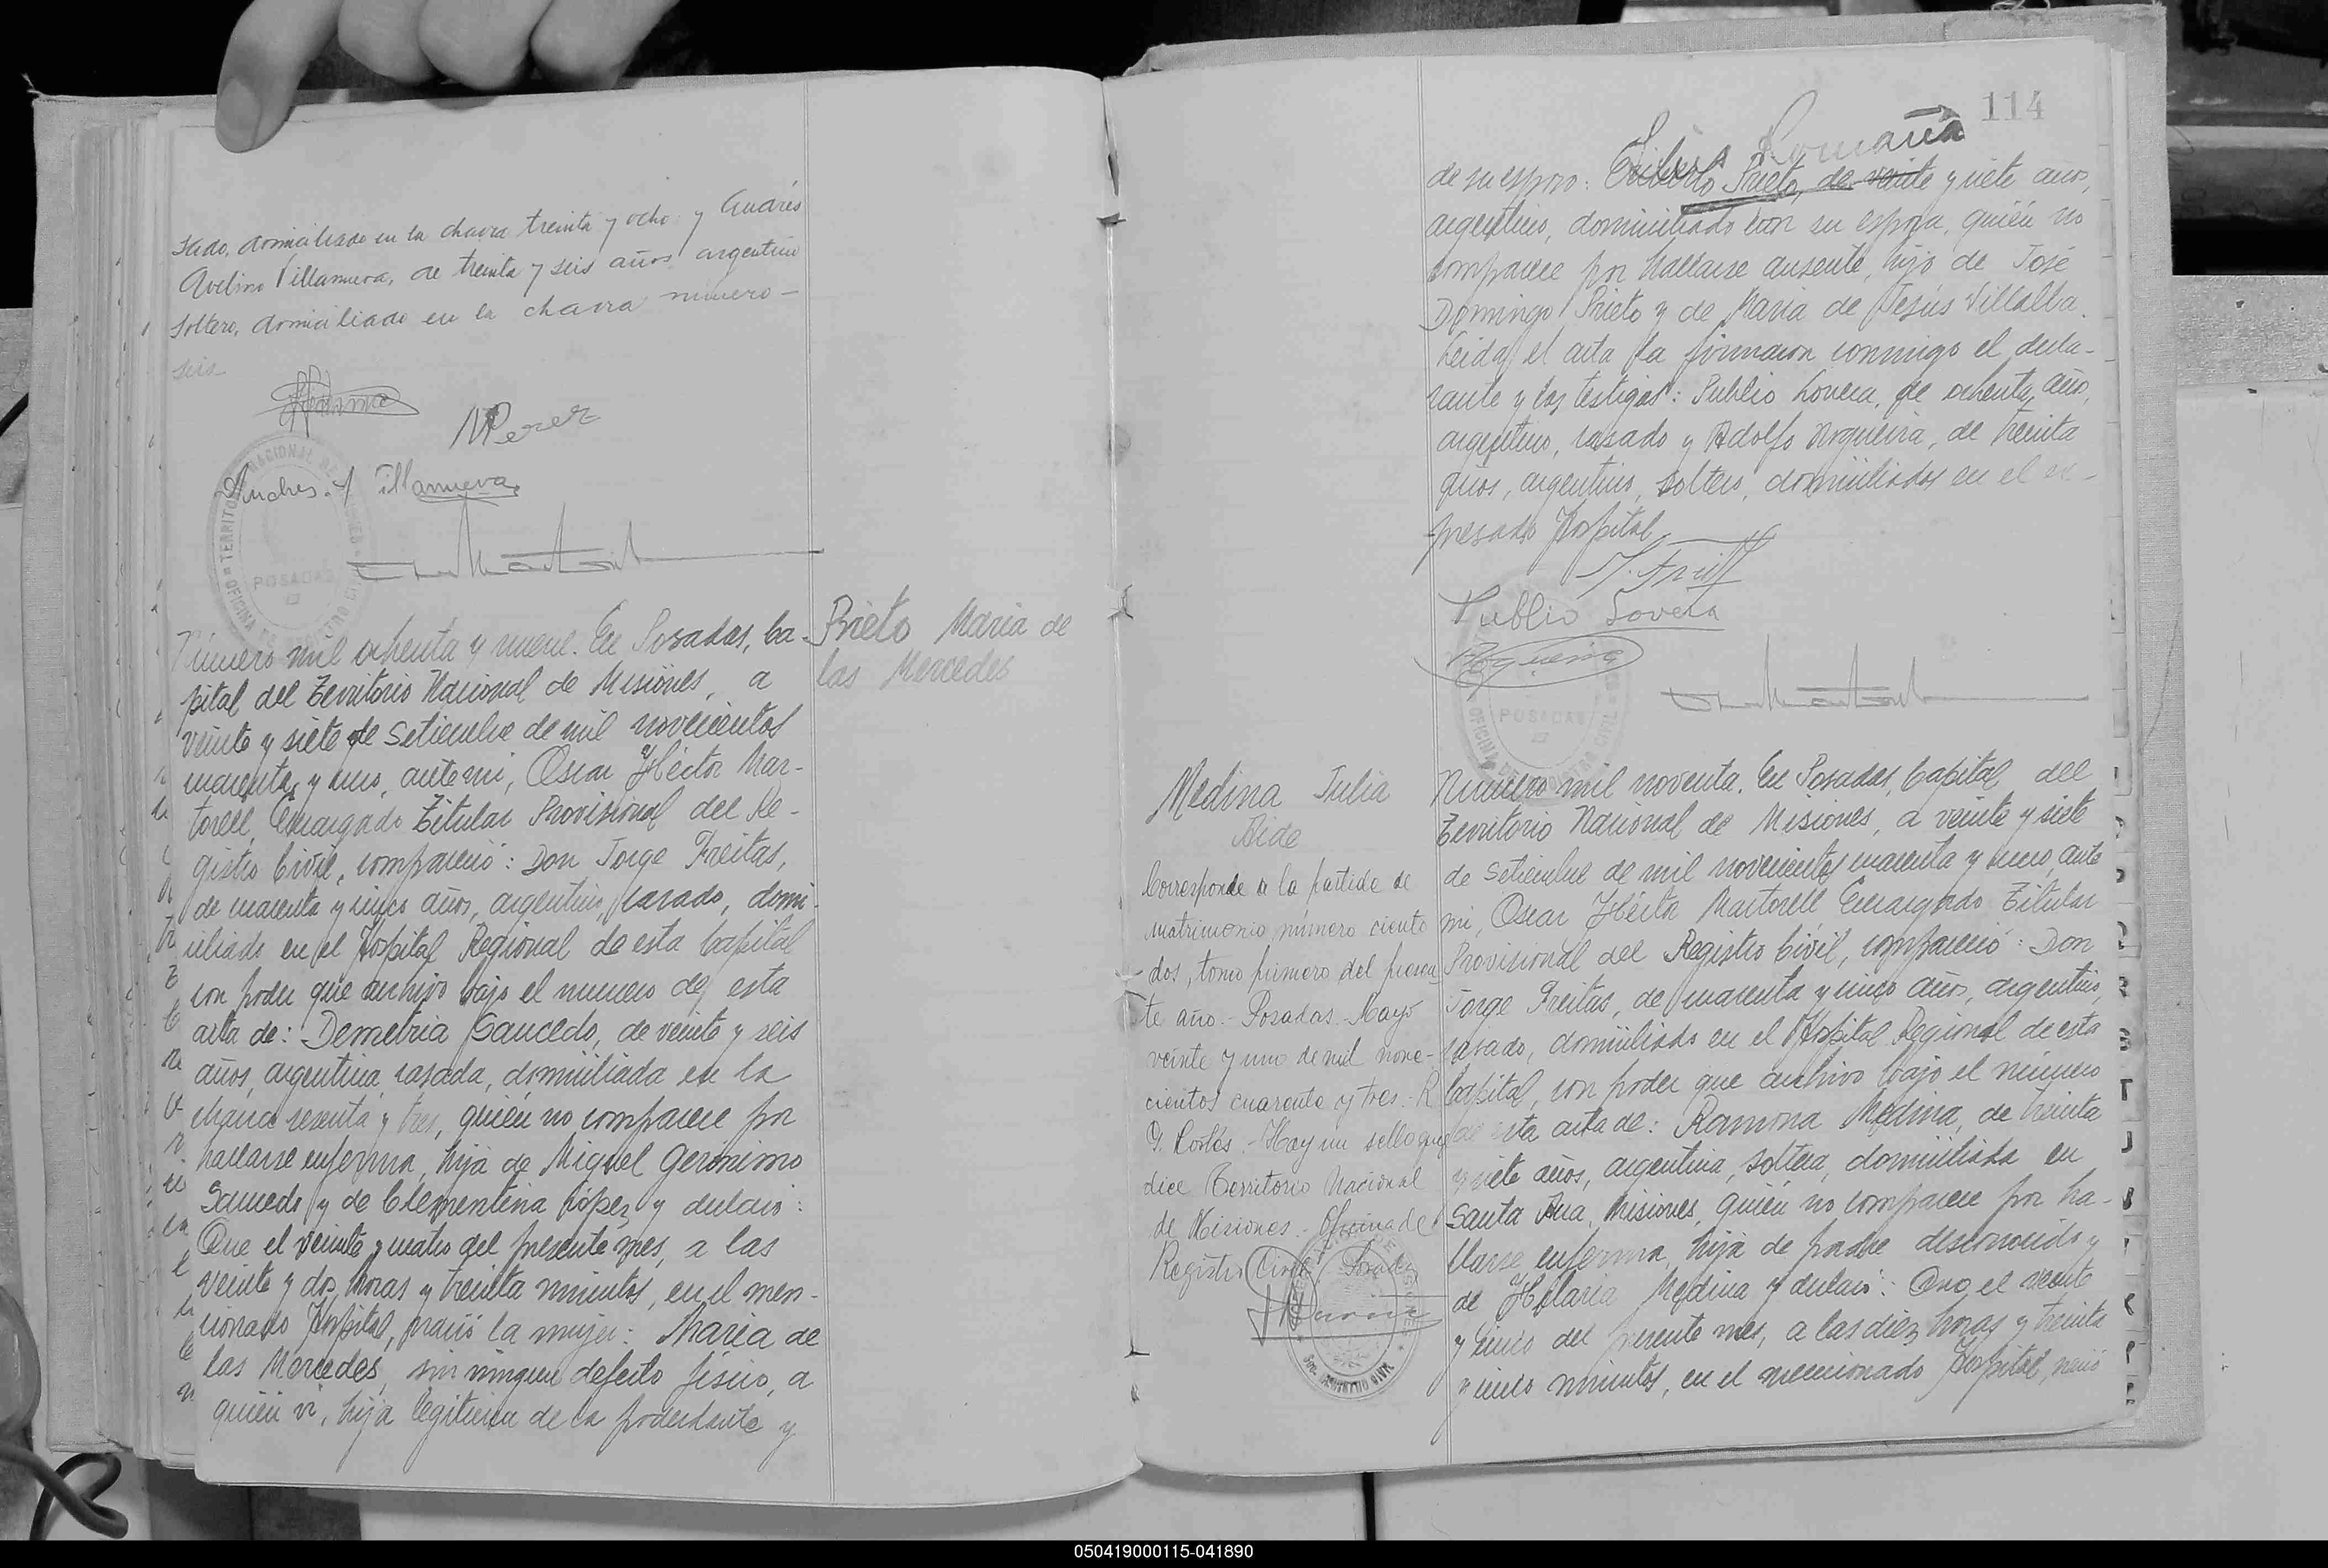 tado, domiciliado en la chacra treinta y ocho y Andrés
Avelino Villanueva, de treinta y seis años argentino
soltero, domiciliado en la chacra número
seis
MPerez
Andres A Villanueva
POSADAS
Número mil ochenta y nueve. En Posadas, Ca-
pital del Territorio Nacional de Misiones, a
veinte y siete de Setiembre de mil novecientos
cuarenta y uno, ante mi, Oscar Héctor Mar-
torell, Encargado Titular Provisional del Re-
gistro Civil, compareció: Don Jorge Freitas,
de cuarenta y cinco años, argentino, casado, domi-
ciliado en el Hospital Regional de esta Capital
con poder que archivo bajo el número de esta
acta de: Demetria Saucedo, de veinte y seis
años, argentina, casada, domiciliada en la
chacra sesenta y tres, quién no comparece por
hallarse enferma, hija de Miguel Gerónimo
Saucedo y de Clementina López y declaró:
Que el veinte y cuatro del presente mes, a las
veinte y dos horas y treinta minutos, en el men-
cionado Hospital, nació la mujer: María de
las Mercedes, sin ningun defecto físico, a
quién ví, hija legítima de la poderdante y
Prieto María de
las Mercedes
114
Romaña
de su esposo: Eriberto Prieto, de veinte y siete años,
argentino, domiciliado con su esposa, quién no
comparece por hallarse ausente, hijo de José
Domingo Prieto y de María de Jesús Villalba.
Leida el acta la firmaron conmigo el decla-
rante y los testigos: Publio Lovera, de ochenta años,
argentino, casado y Adolfo Nogueira, de treinta
años, argentino, soltero, domiciliados en el ex-
presado Hospital
J. Freitas
Publio Lovera
Nogueira
POSADAS
Medina Julia
Aide
Corresponde a la partida de
matrimonio número ciento
dos, tomo primero del presen
te año.- Posadas Mayo
veinte y uno de mil nove-
cientos cuarenta y tres.- R
G. Cortés.- Hay un sello que
dice Territorio Nacional
de Misiones.- Oficina del
Registro Civil Posadas
Número mil noventa. En Posadas, Capital del
Territorio Nacional de Misiones, a veinte y siete
de Setiembre de mil novecientos cuarenta y uno, ante
mi, Oscar Héctor Martorell Encargado Titular
Provisional del Registro Civil, compareció: Don
Jorge Freitas, de cuarenta y cinco años, argentino,
casado, domiciliado en el Hospital Regional de esta
Capital, con poder que archivo bajo el número
de esta acta de: Ramona Medina, de treinta
y siete años, argentina, soltera, domiciliada en
Santa Ana, Misiones, quién no comparece por ha-
llarse enferma, hija de padre desconocido y
de Hilaria Medina y declaró: Que el veinte
y cinco del presente mes, a las diez horas y treinta
y cinco minutos, en el mencionado Hospital, nació
050419000115-041890